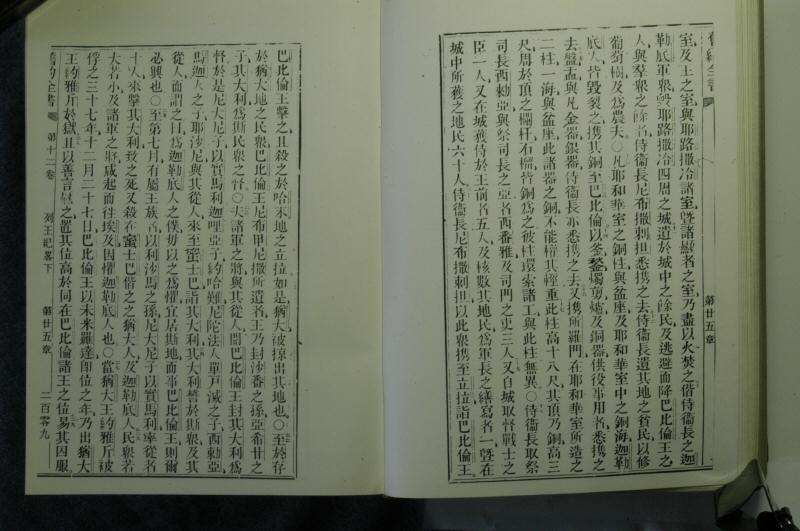 舊約全書
第廿五章
室及王之室與耶路撒冷諸室暨諸顯者之室乃盡以火焚之偕侍衞長之迦
勒底軍衆毀耶路撒冷四周之城遺於城中之餘民及逃避而降巴比倫王之
人與羣衆之餘者侍衞長尼布撒剌担悉携之去侍衞長遺其地之貧民以修
葡萄樹及爲農夫○凡耶和華室之銅柱與盆座及耶和華室中之銅海迦勒
底人皆毀裂之携其銅至巴比倫以釜
燭剪爐及銅器供役事用者悉携之
去盤盂與凡金器銀器侍衞長亦悉携之去又携所羅門在耶和華室所造之
二柱一海與盆座此諸器之銅不能權其輕重此柱高十八尺其頂乃銅高三
尺周於頂之欄杆石榴皆銅爲之彼柱環索諸工與此柱無異○侍衞長取祭
司長西勅亞與祭司長之亞者西番雅及司門之吏三人又自城取督戰士之
臣一人又在城獲侍於王前者五人及核數其地民爲軍長之繕寫者一暨在
城中所獲之地民六十人侍衞長尼布撒剌担以此衆携至立拉詣巴比倫王
巴比倫王擊之且殺之於哈末地之立拉如是猶大被掠出其地也○至於存
於猶大地之民衆巴比倫王尼布甲尼撒所遺者王乃封沙番之孫亞希甘之
子其大利爲斯民衆之督○夫諸軍之將與其從人聞巴比倫王封其大利爲
督於是尼大尼子以實馬利迦哩亞子約哈難尼陀法人單戸滅之子西勅亞
馬迦人之子耶沙尼與其從人來至蜜士巴詣其大利其大利誓於斯衆及其
從人而謂之曰爲迦勒底人之僕毋以之爲懼宜居斯地而事巴比倫王則爾
必興也○至第七月有屬王族者以利沙馬之孫尼大尼子以實馬利率從者
十人來擊其大利致之死又殺在蜜士巴偕之之猶大人及迦勒底人民衆若
大若小及諸軍之將咸起而往埃及因懼迦勒底人也○當猶大王約雅斤被
俘之三十七年十二月二十七日巴比倫王以未米羅達卽位之年乃出猶大
王約雅斤於獄且以善言慰之置其位高於同在巴比倫諸王之位易其囚服
舊約全書
第十二卷
列王紀畧下
第廿五章
二百零九